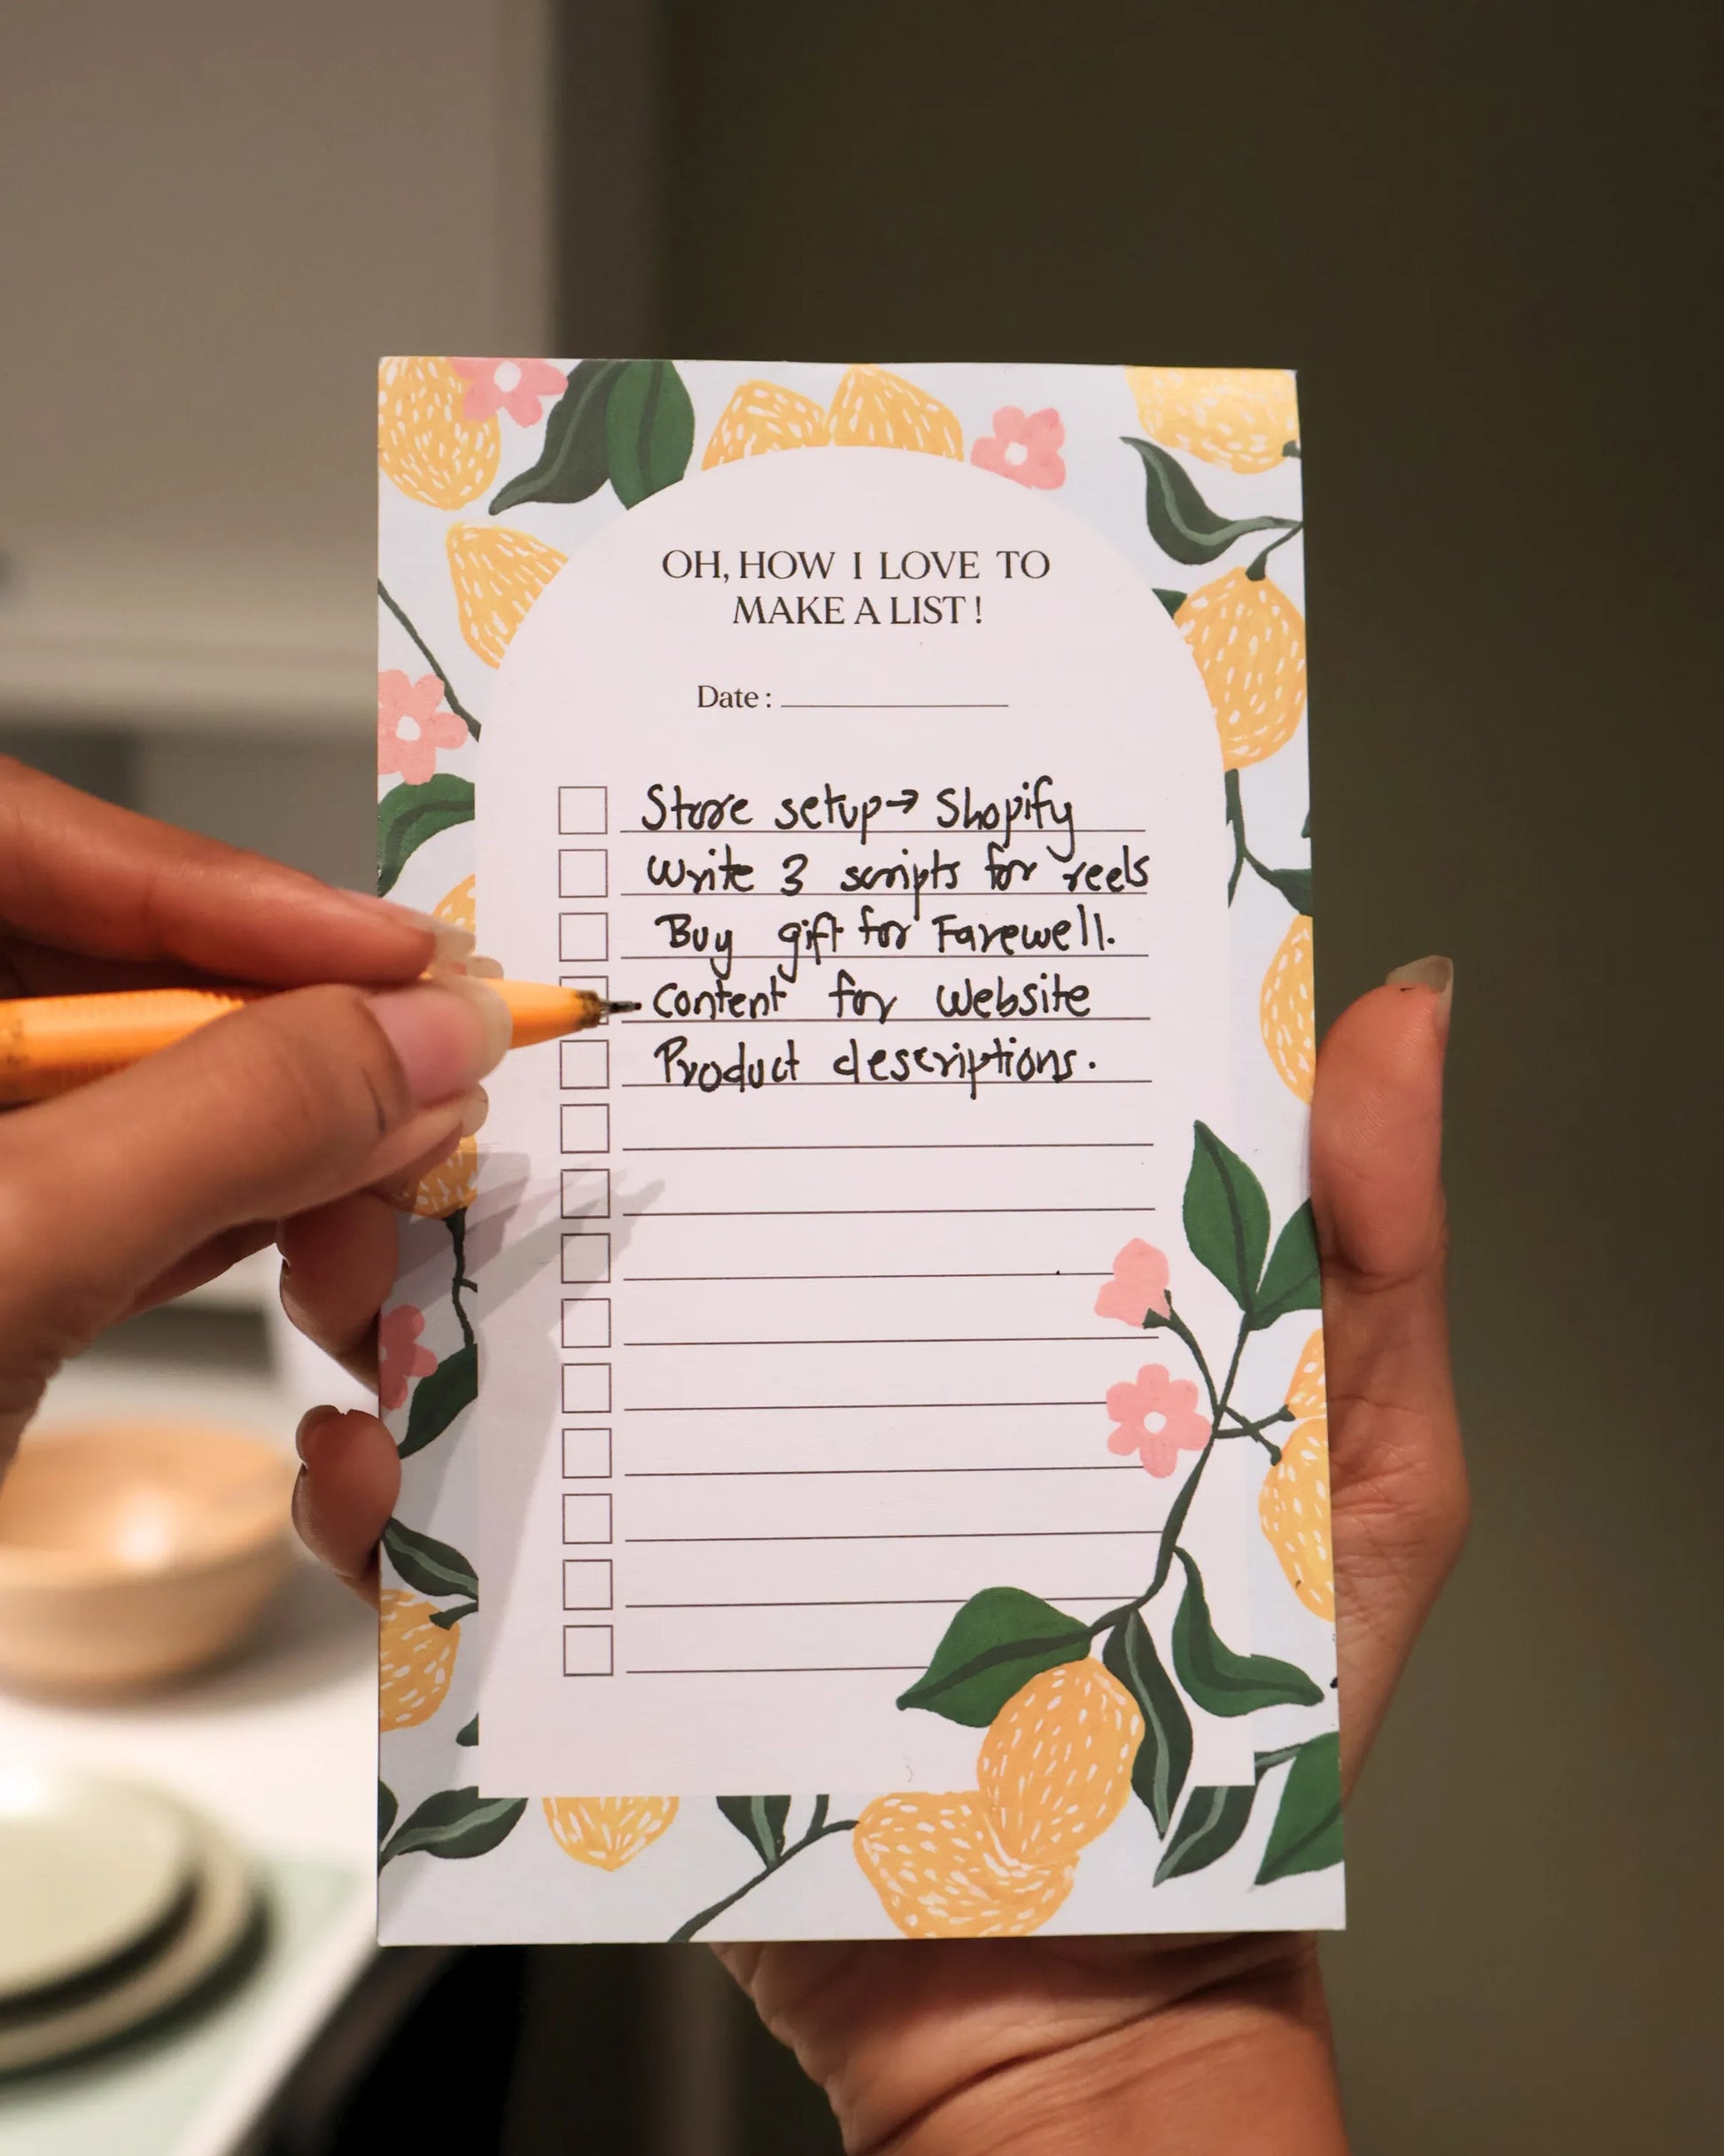 OH, HOW I LOVE TO
MAKE A LIST!
Date:
Store setup→ Shopify
Write 3 scripts for reels
Buy gift for Farewell.
Content for Website
Product descriptions.